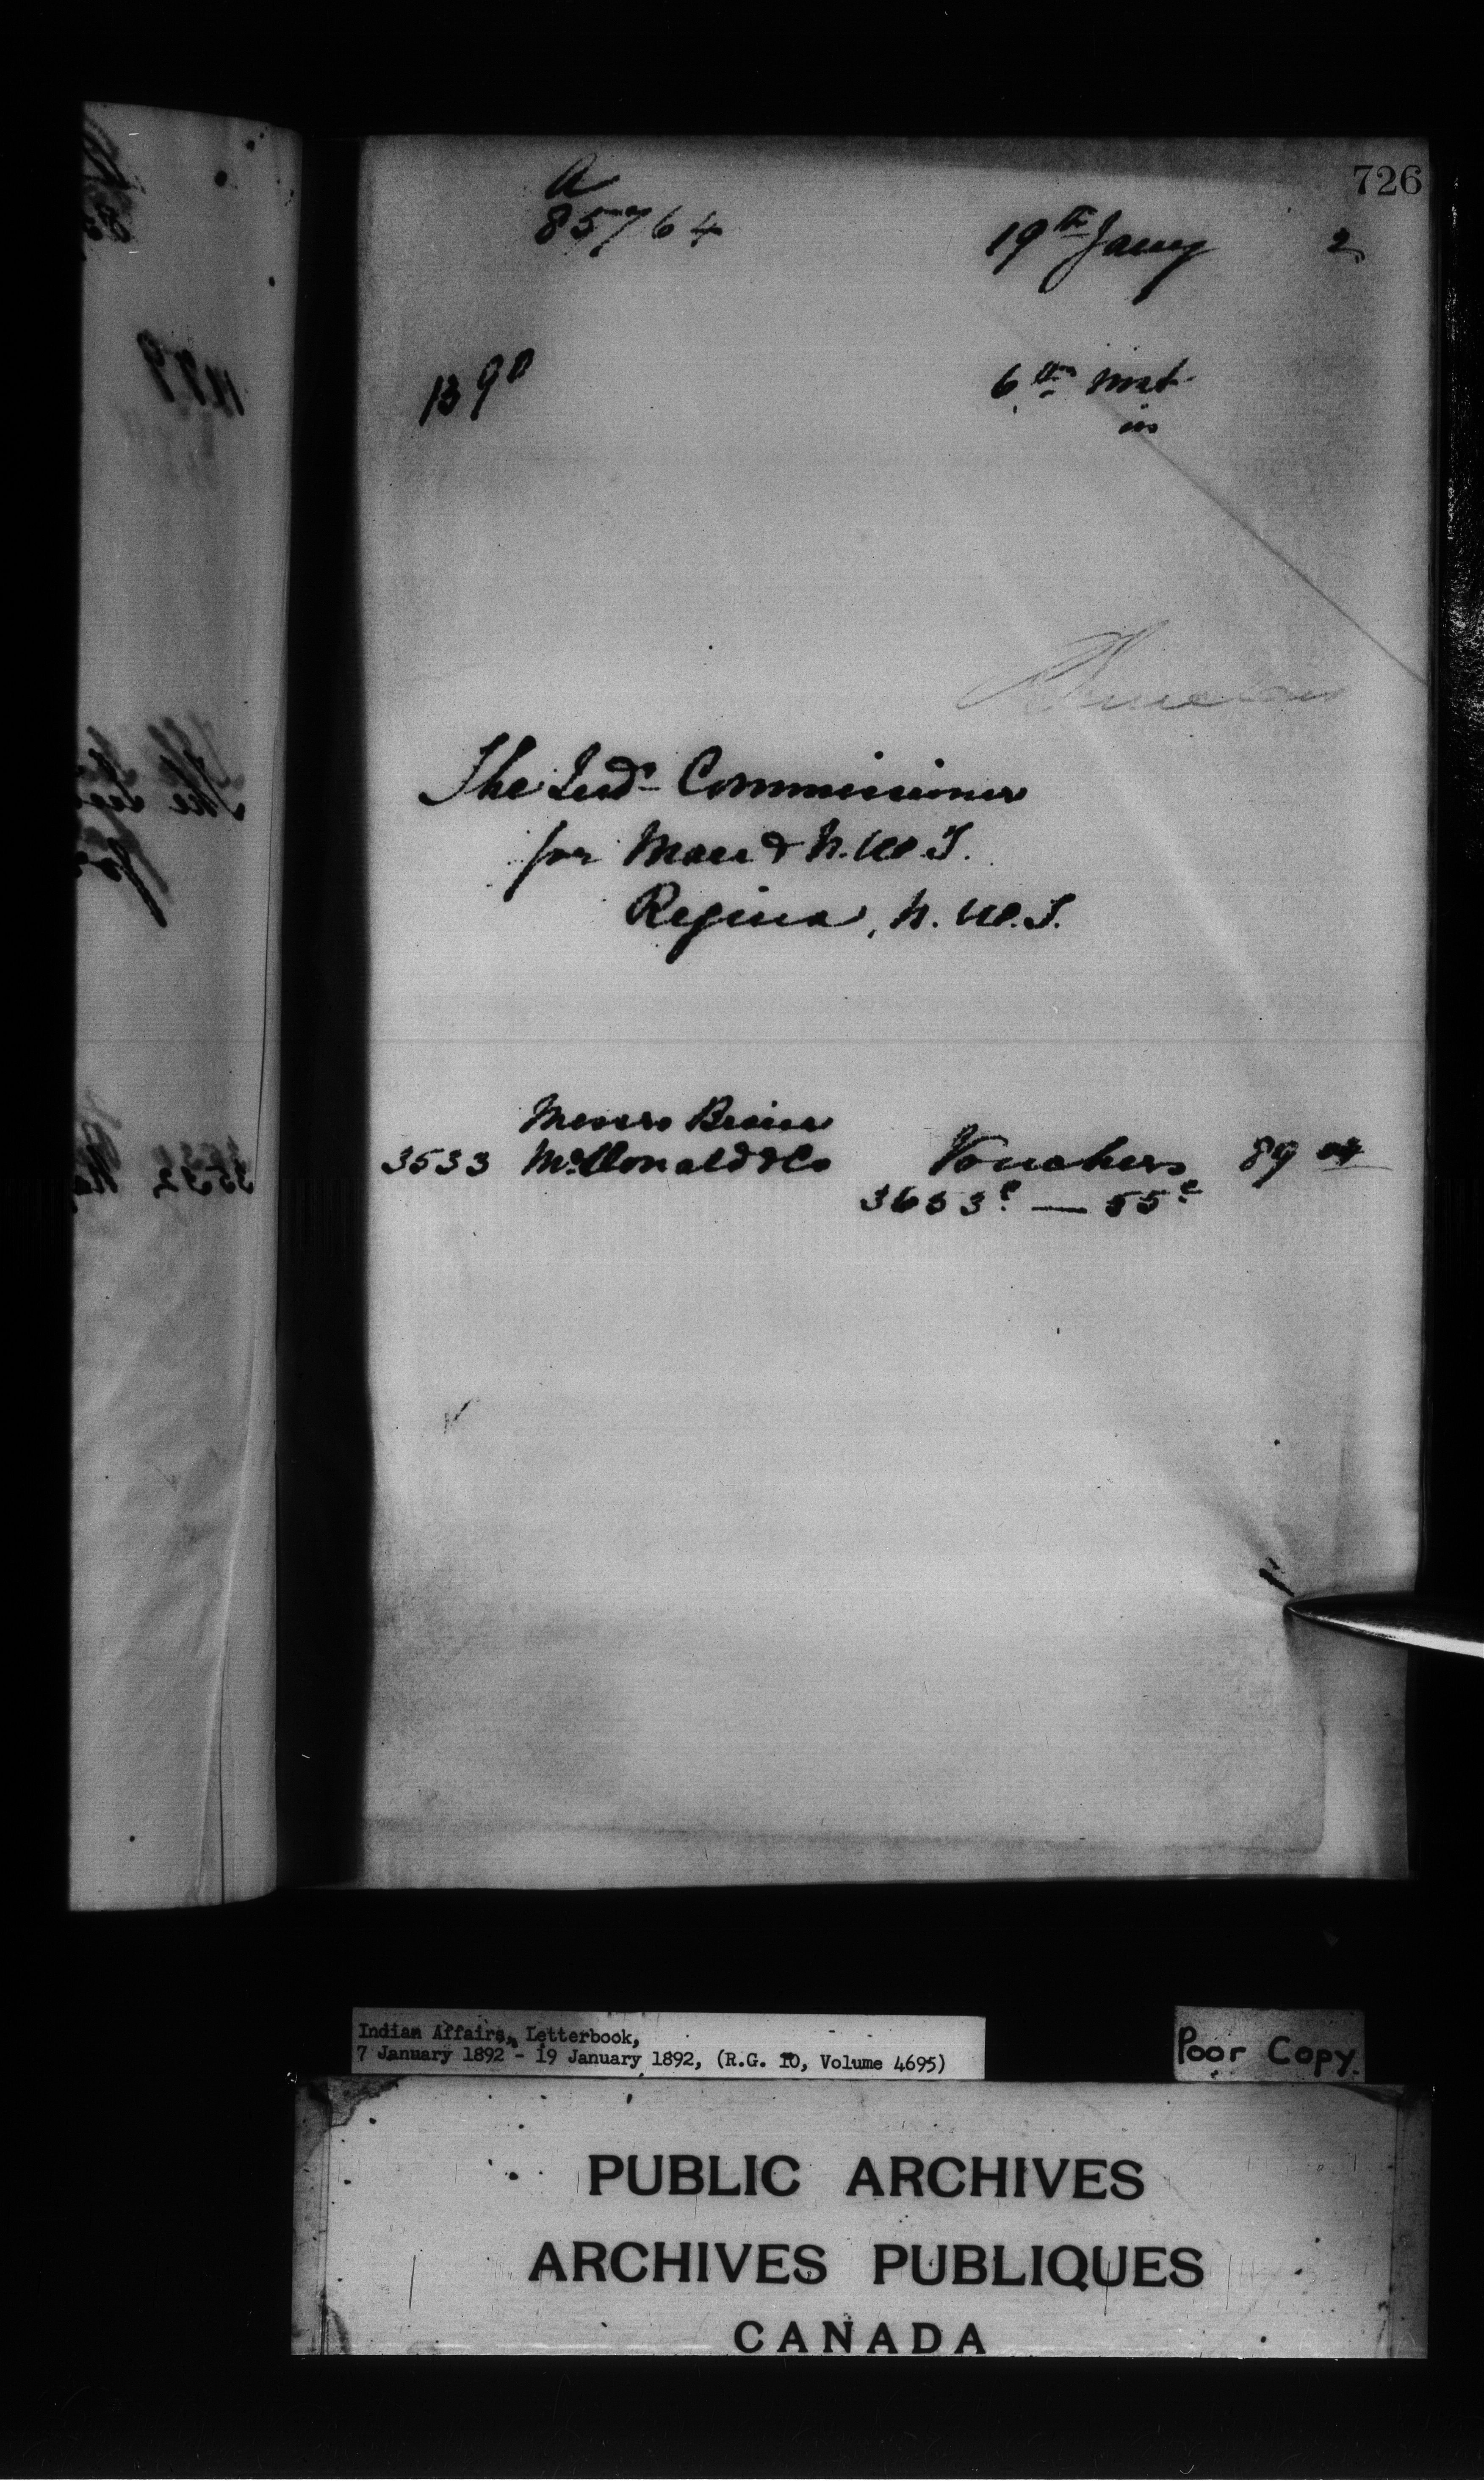 726
a
85764 19th Jany 2
1390 6th inst
in
The Ind. Commissioner
for Man & N.W.T.
Regina, N.W.T.
Messrs
3533 McDonald & Co Vouchers 89 04
3653e — 55e
Indian Affairs, Letterbook,
7 January 1892 - 19 January 1892, (R.G. 10, Volume 4695)
Poor Copy.
PUBLIC ARCHIVES
ARCHIVES PUBLIQUES
CANADA